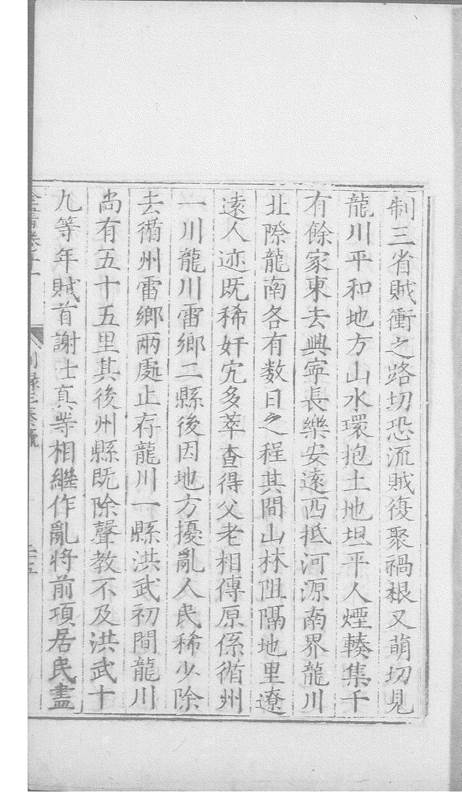 制三省賊衝之路切恐流賊復聚禍根又萌切見
龍川平和地方山水環抱土地坦平人煙輳集千
有餘家東去興寧長樂安遠西抵河源南界龍川
北際龍南各有数日之程其間山林阻隔地里遼
遠人迹既稀奸宄多萃查得父老相傳原係循州
一川龍川雷鄉二縣後因地方擾亂人民稀少除
去循州雷鄉兩處止存龍川一縣洪武初間龍川
尚有五十五里其後州縣既除聲教不及洪武十
九等年賊首謝士真等相繼作亂將前項居民盡